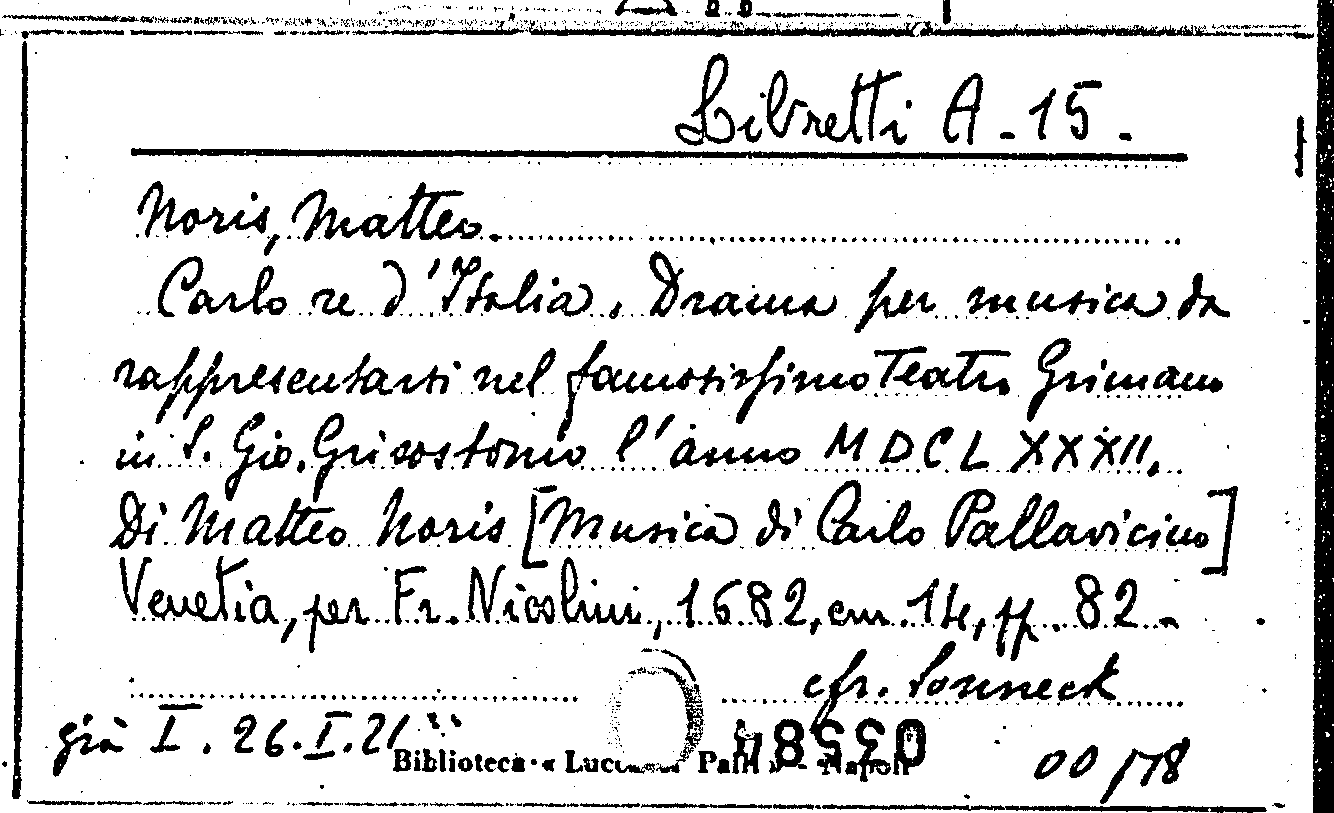 Libretti A - 15 -
Noris, Matteo.
Carlo re d'Italia. Drama per musica da
rappresentarsi nel famosissimo Teatro Grimano
in S. Gio. Grisostomo l'anno MDCLXXXII.
Di Matteo Noris [Musica di Carlo Pallavicino]
Venetia, per Fr. Nicolini, 1682, cm. 14, pp. 82 -
cfr. Sonneck
già I. 26.I.21
Biblioteca « - Napoli